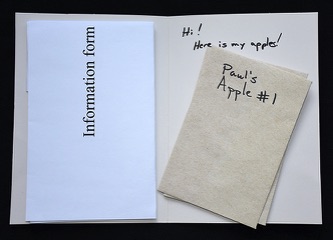 Information form
Hi!
Here is my apples!
Paul's
Apple #1